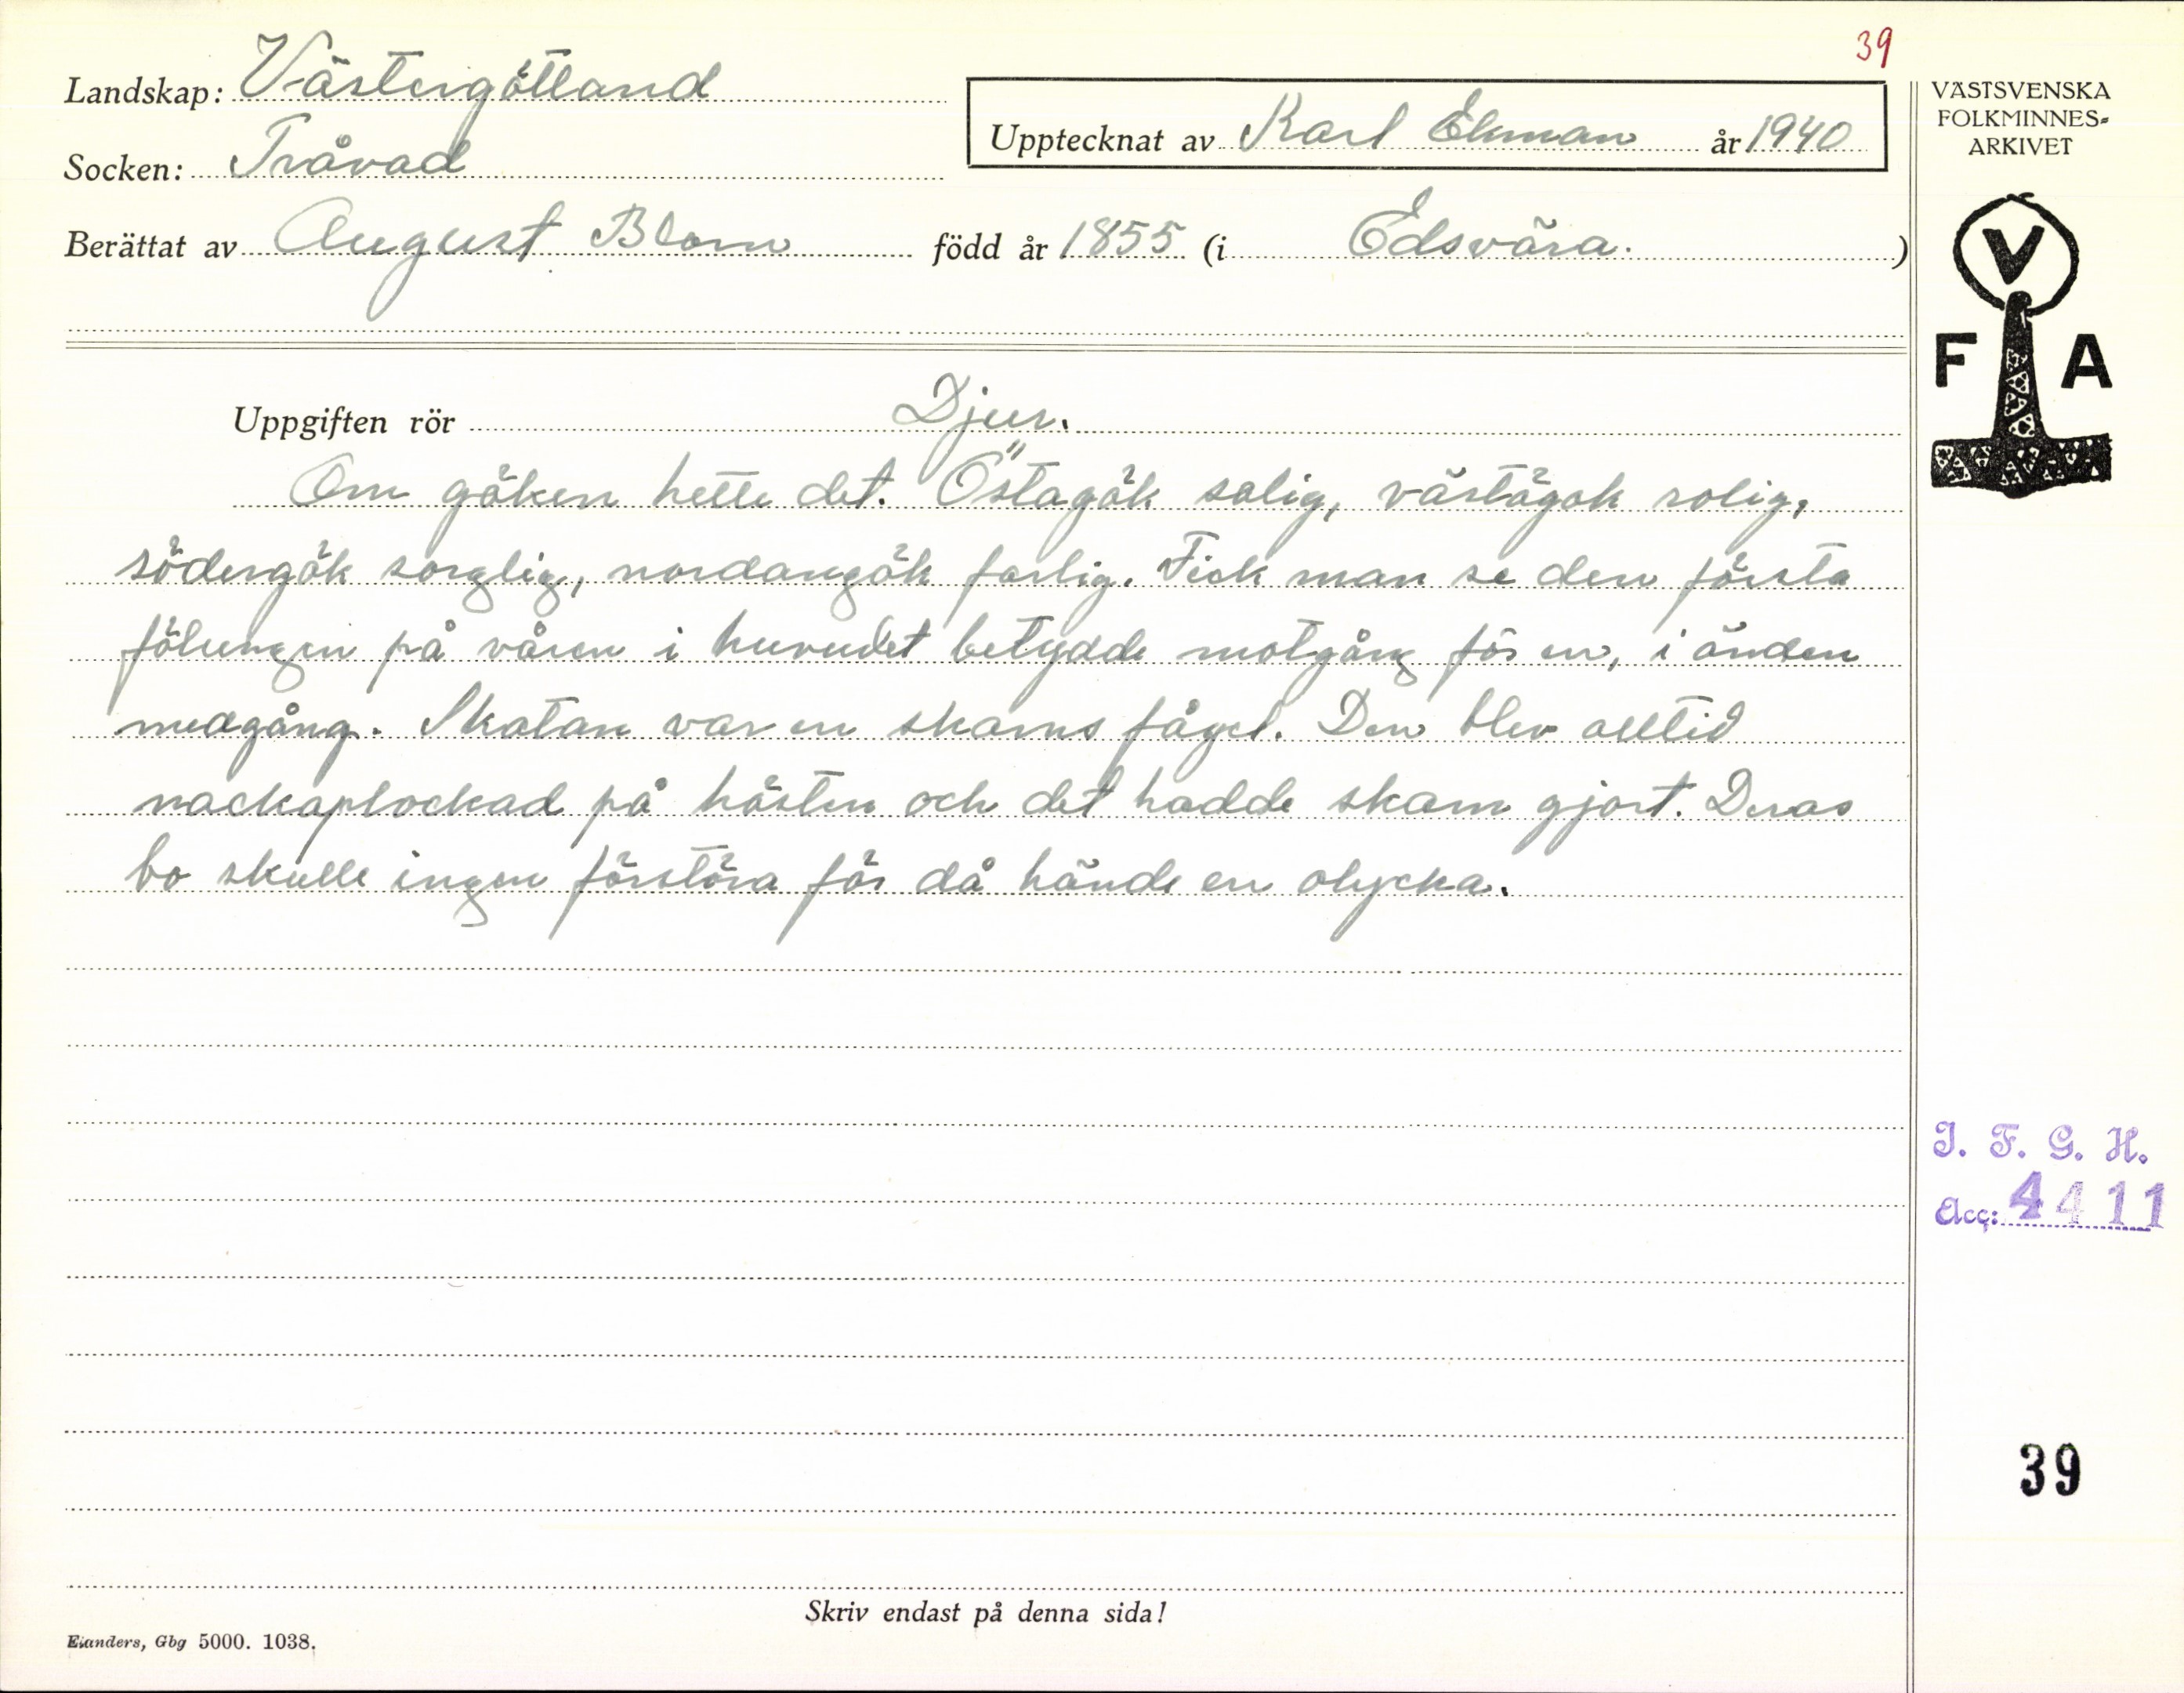 39
Landskap: Västergötland
Upptecknat av Karl Ekman år 1940
Socken: Tråvad
Berättat av August Blom född år 1855 (i Edsvära.)
VÄSTSVENSKA
FOLKMINNES-
ARKIVET
V
F A
Uppgiften rör Djur.
Om göken hette det. Östagök salig, västägok rolig,
södergök sorglig, nordangök farlig. Fick man se den första
fölungen på våren i huvudet betydde motgång för en, i änden
medgång. Skatan var en skams fågel. Den blev alltid
nackaplockad på hösten och det hadde skam gjort. Deras
bo skulle ingen förstöra för då hände en olycka.
I. F. G. H.
Acc: 4411
39
Skriv endast på denna sida!
Elanders, Gbg 5000. 1038.